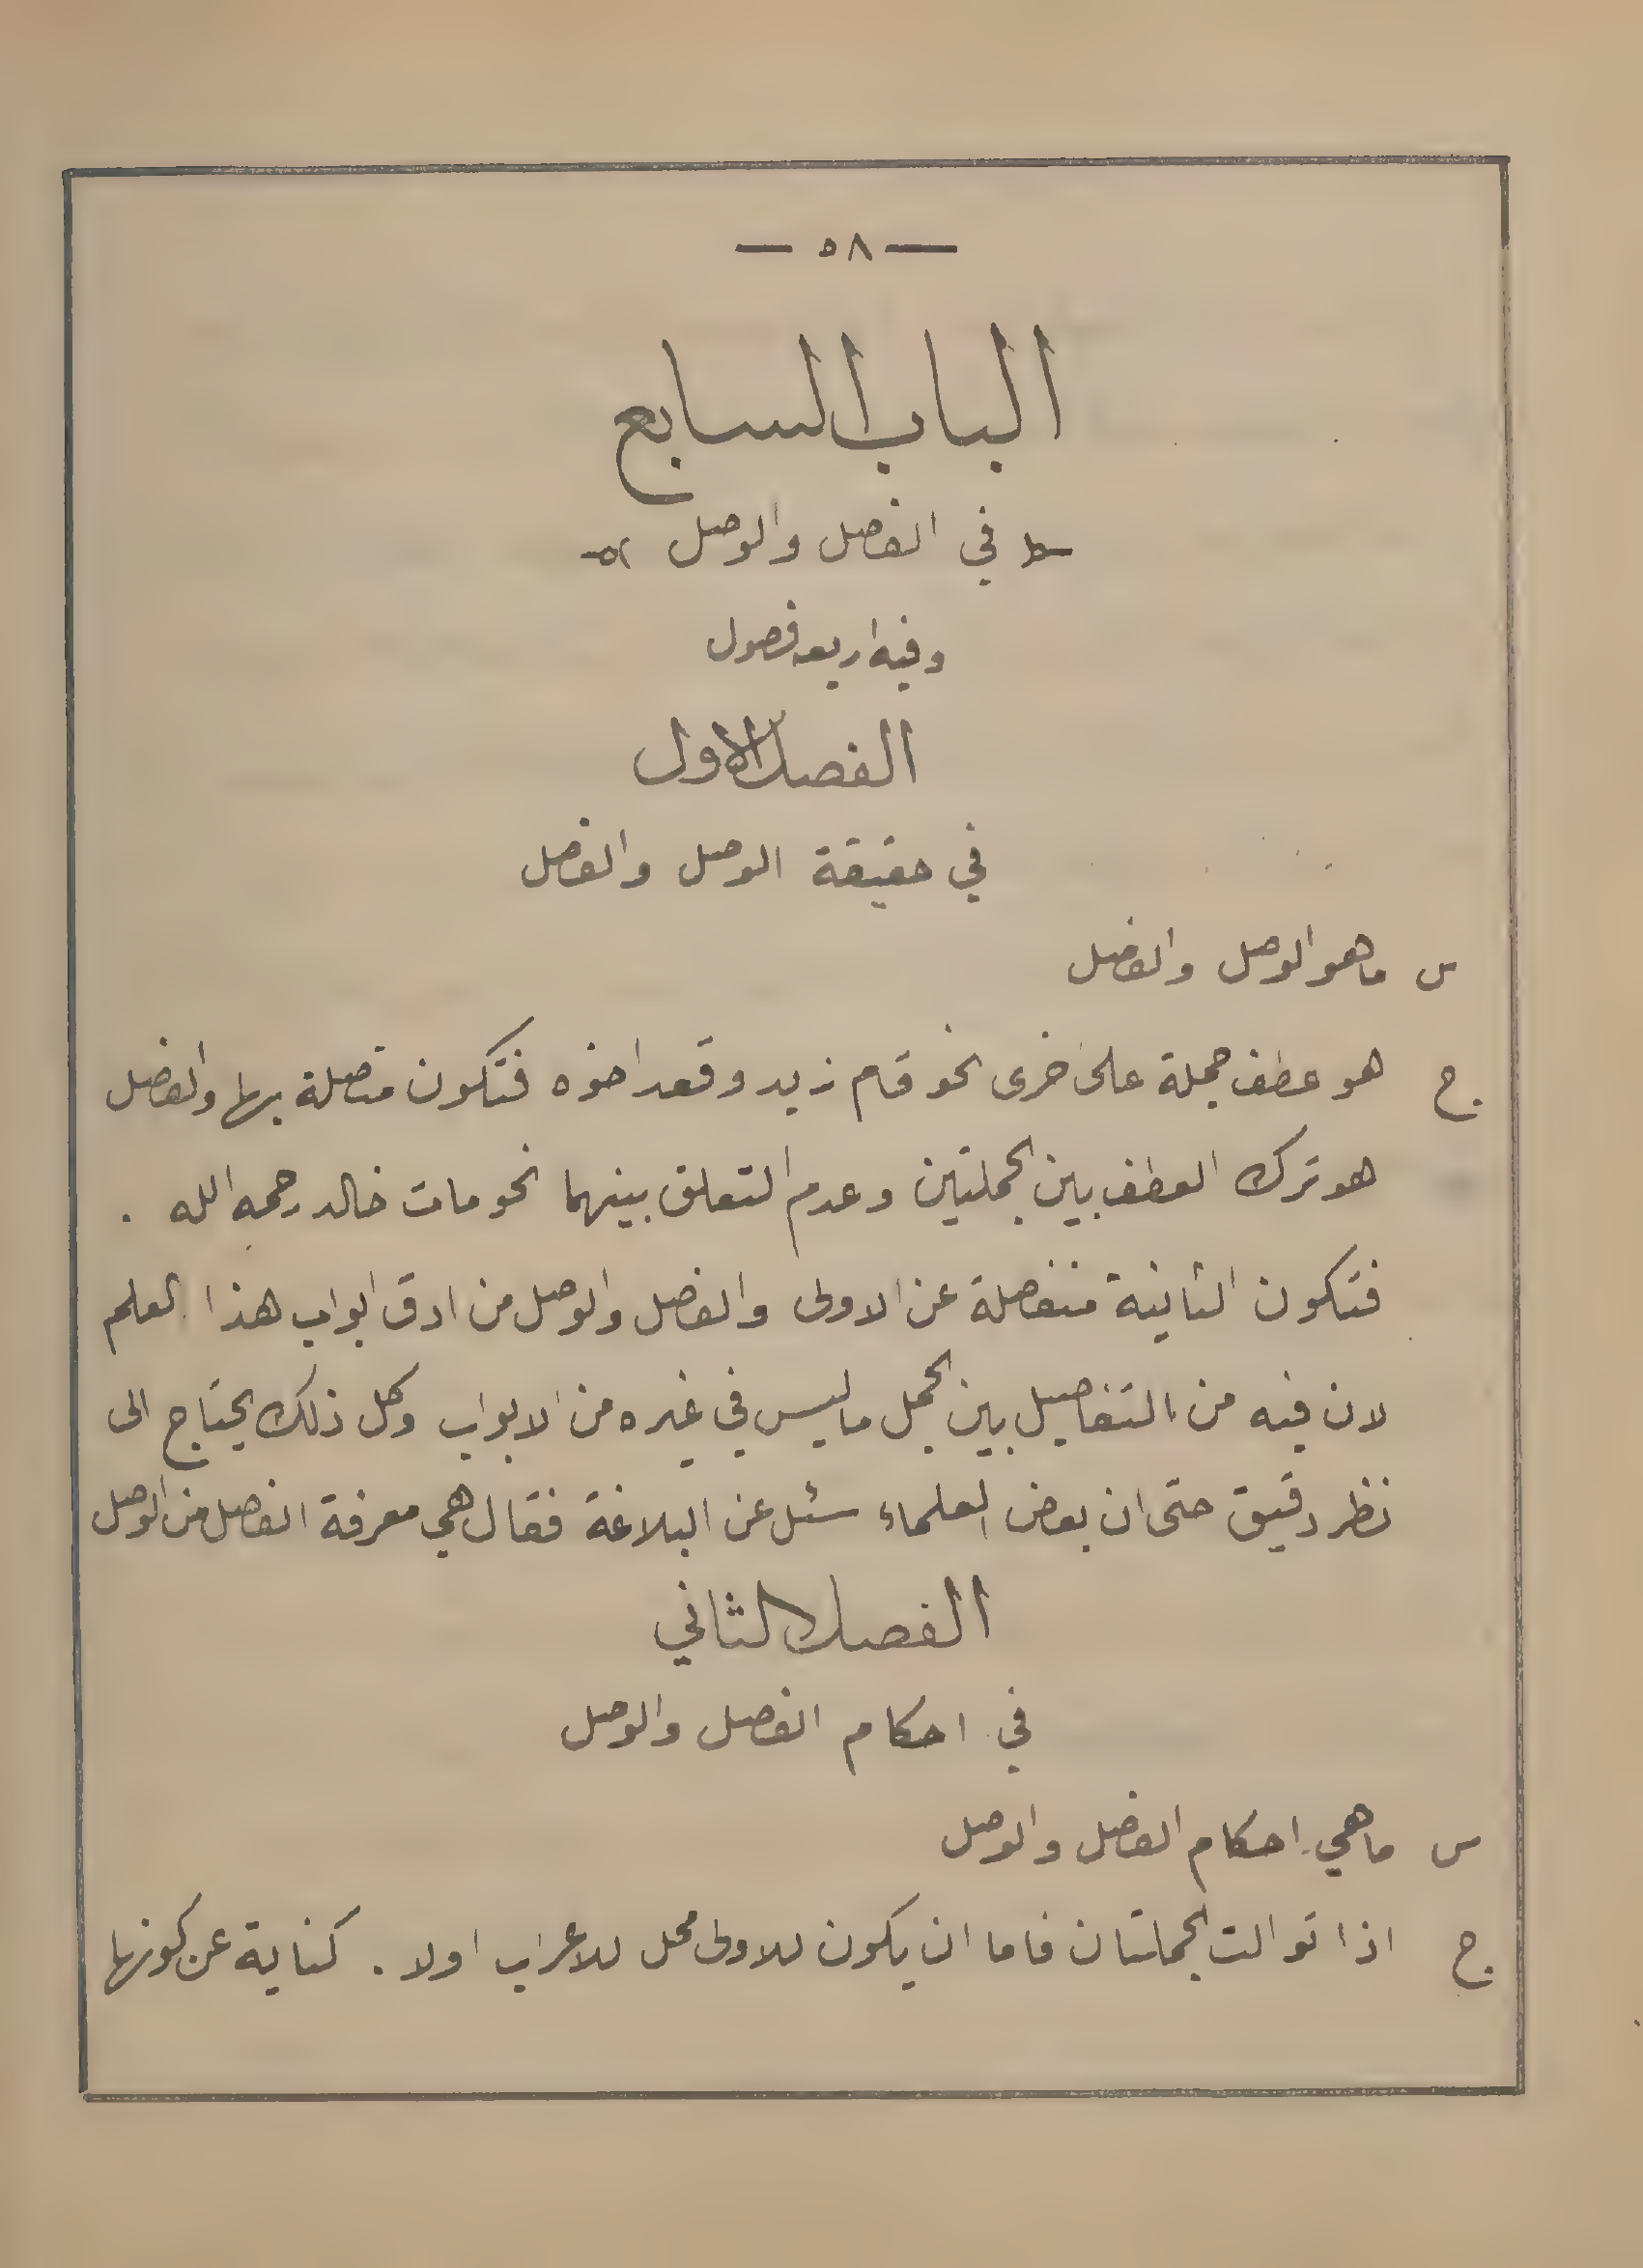 — ٥٨ —
الباب السابع
في الفصل والوصل
وفيه اربعه فصول
الفصل الاول
في حقيقة الوصل والفصل
س ما هو الوصل والفصل
ج هو عطف جملة على اخرى نحو قام زيد وقعد اخوه فتكون متصلة بها والفصل
هو ترك العطف بين الجملتين وعدم التعلق بينهما نحو مات خالد رحمه الله .
فتكون الثانية منفصلة عن الاولى والفصل والوصل من ادق ابواب هذا العلم
لان فيه من التفاصيل بين الجمل ما ليس في غيره من الابواب وكل ذلك يحتاج الى
نظر دقيق حتى ان بعض العلماء سئل عن البلاغة فقال هي معرفة الفصل من الوصل
الفصل الثاني
في احكام الفصل والوصل
س ما هي احكام الفصل والوصل
ج اذا توالت الجملتان فاما ان يكون للاولى محل للاعراب اولا . كناية عن كونها